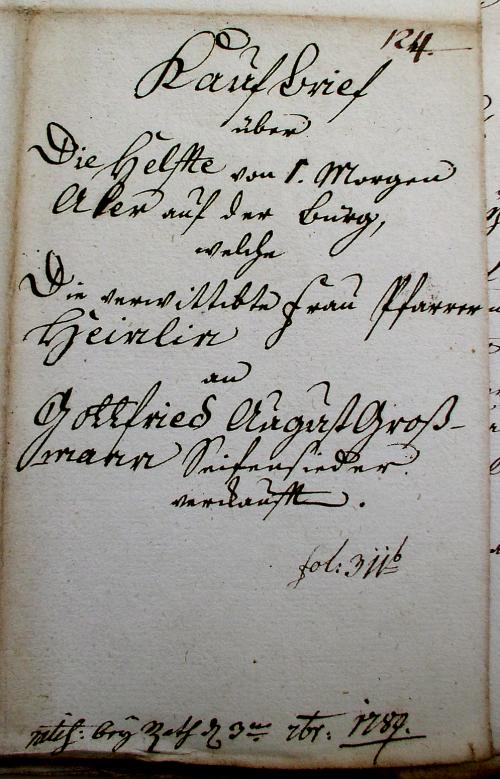 124.
Kaufbrief
über
Die Helfte von 1. Morgen
Aker auf der Burg,
welche
Die verwittibte Frau Pfarrer
Heinlin
an
Gottfried August Groß-
mann Seifensieder
verkaufft.
fol: 311b
bey Rath d 3ten 7br: 1789.